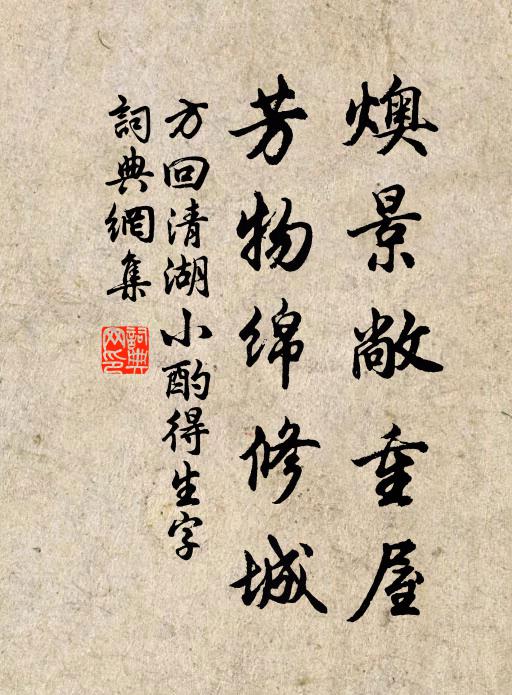 燠景敞重屋
芳物绵修城
方回清湖小酌得生字
詞典網集
詞典網印